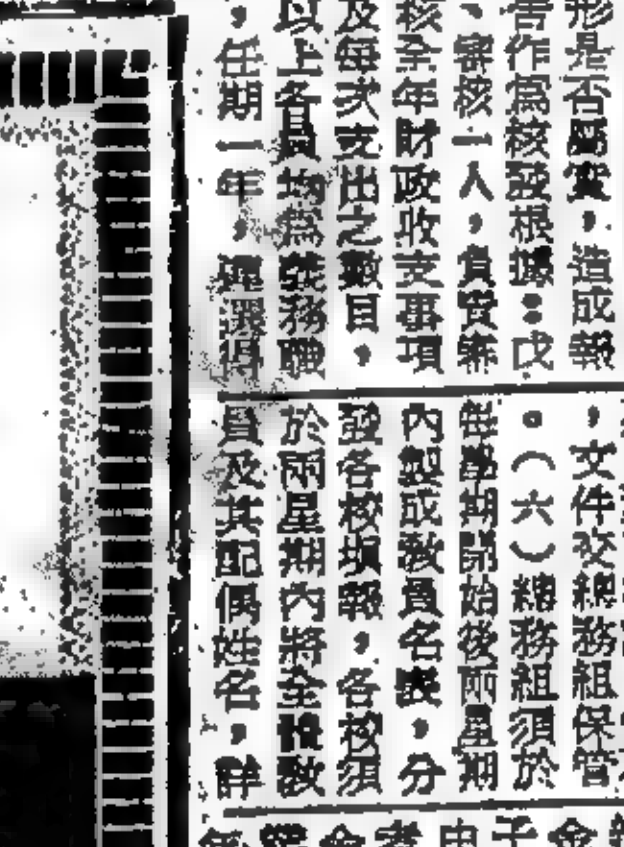 形是否屬實，造成報
告作爲核發根據：戊
、審核一人，負責審
核全年財政收支事項
及每次支出之數目，
以上各員均爲義務職
，任期一年，連選得
，文件交總務組保管
。（六）總務組須於
每學期開始後兩星期
內製成教員名表，分
發各校塡報，各校須
於兩星期內將全校教
員及其配偶姓名，詳